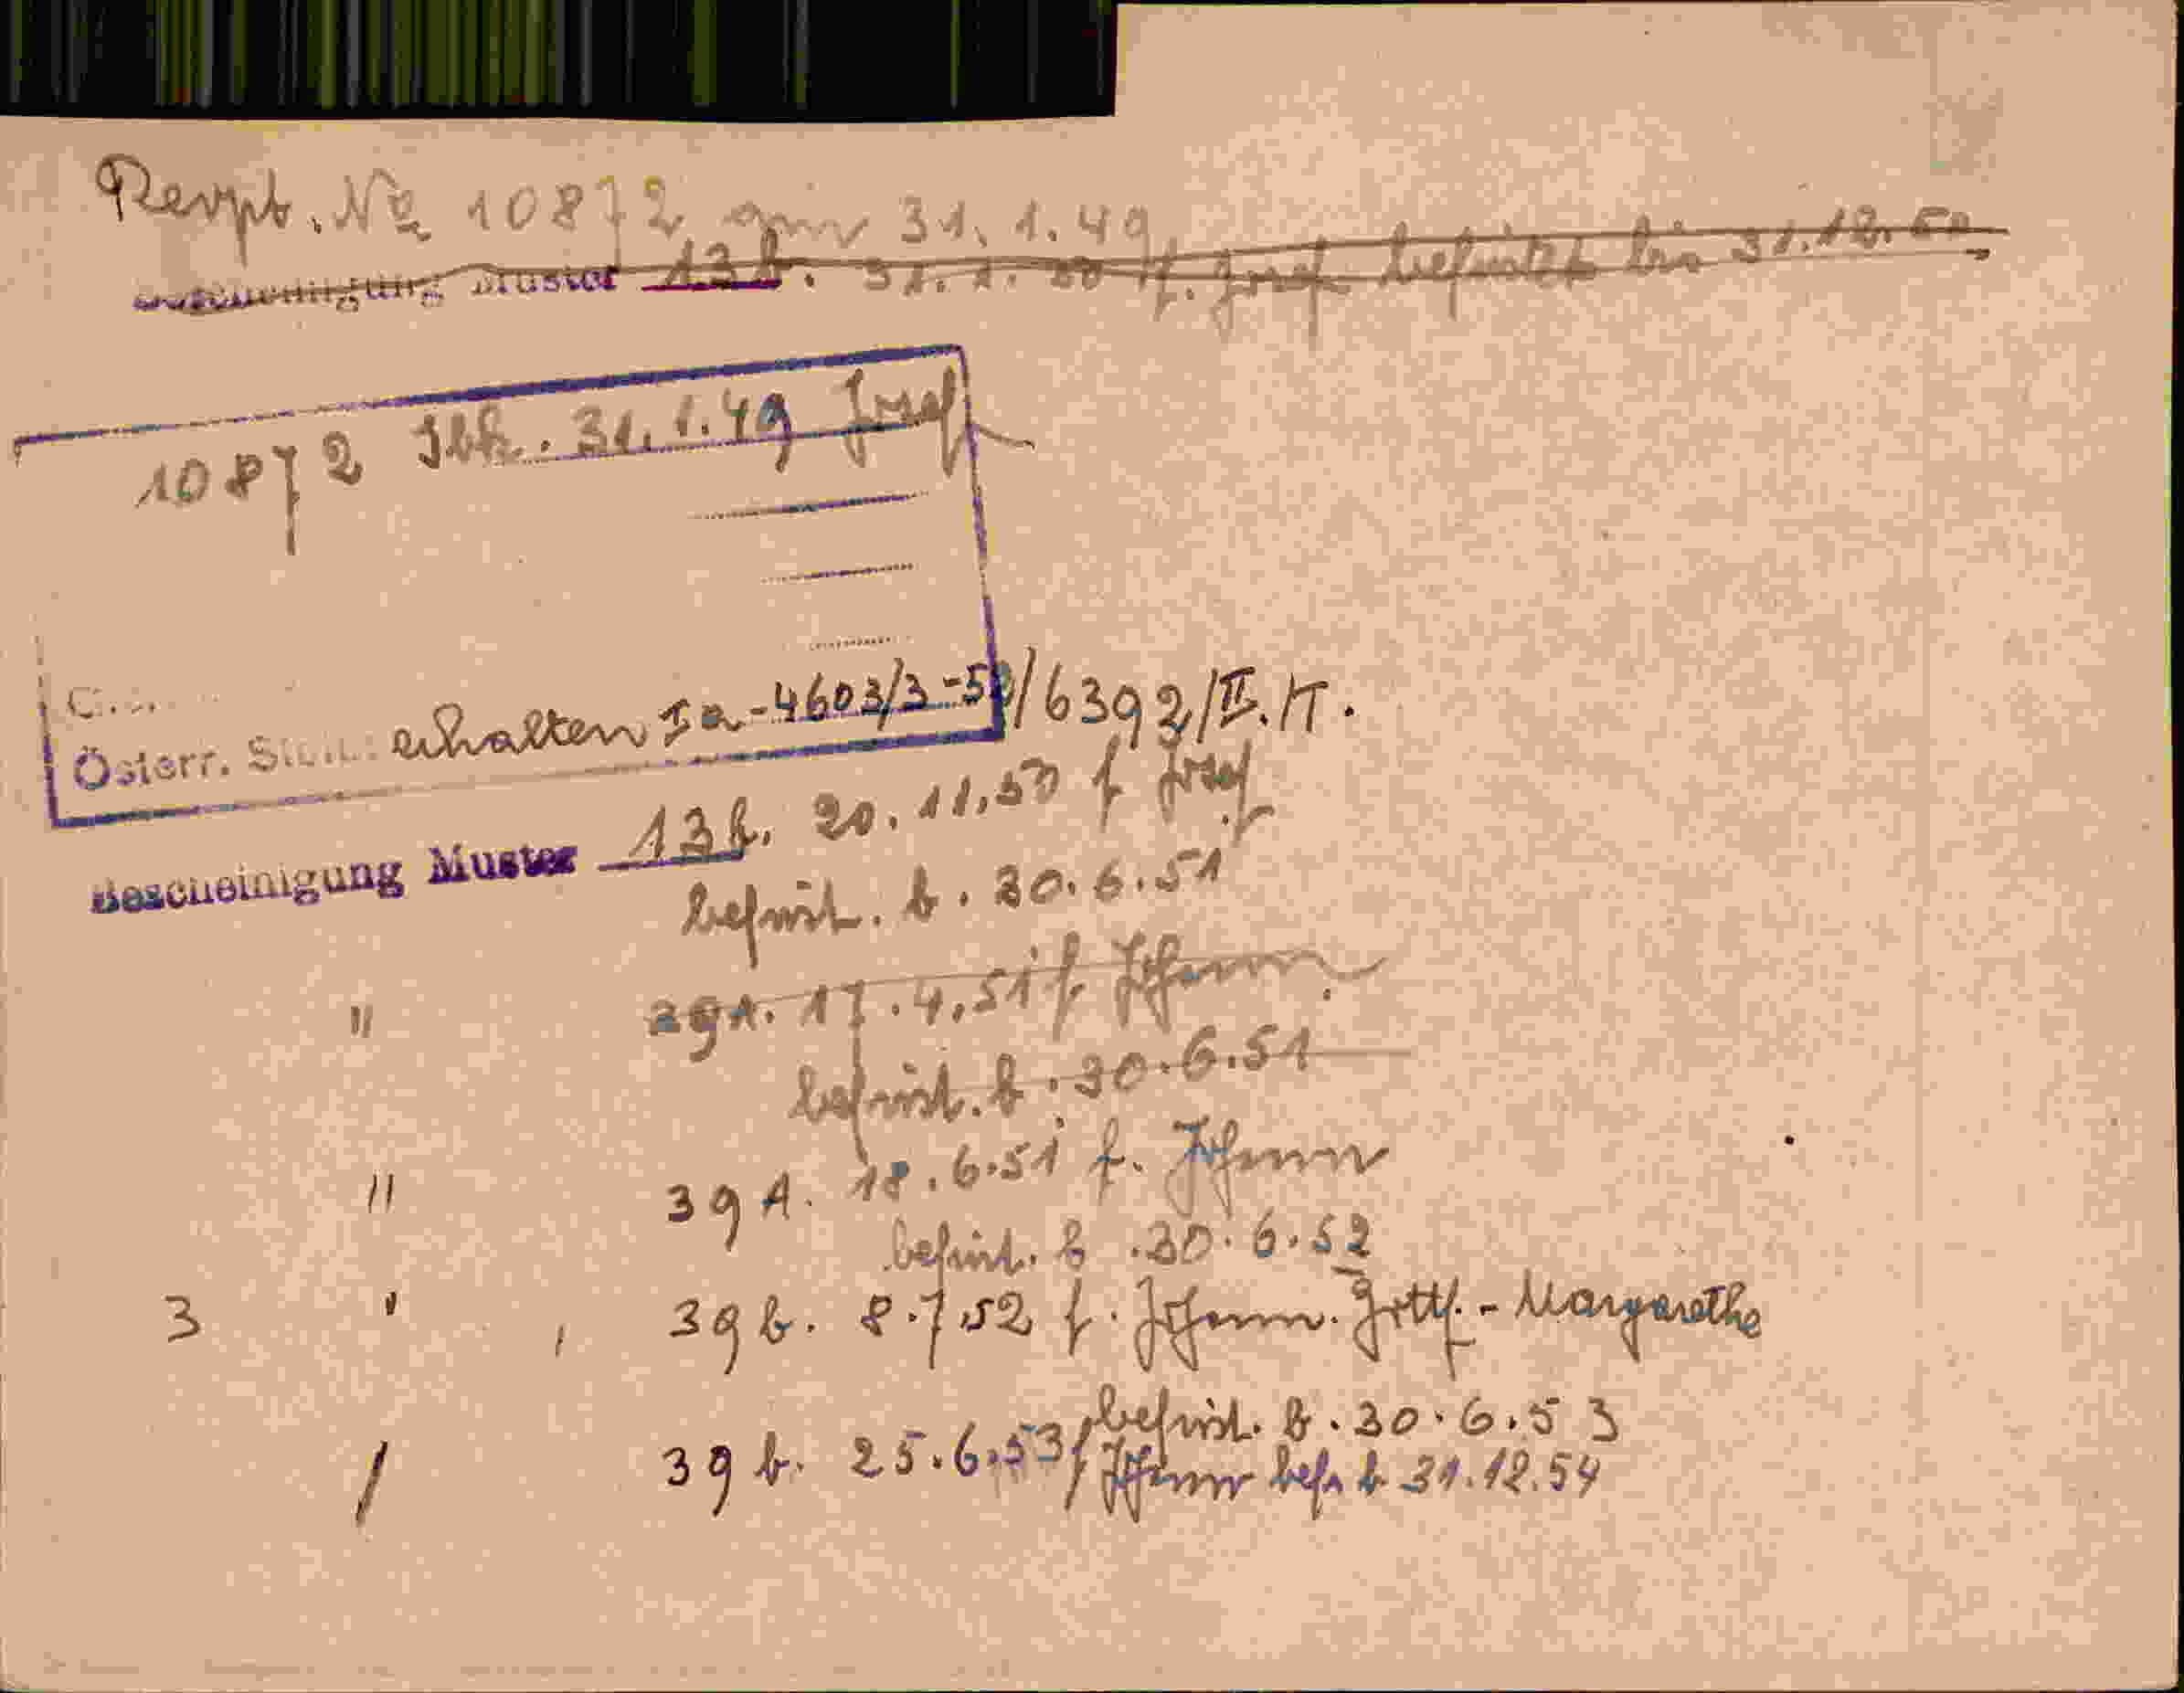 Rezpt. No 10872 grün 31. 1. 49
Bescheinigung Muster 13b. 31. 1. 50 f. Josef befristet bis 31. 12. 50
10872 Ibk. 31. 1. 49 Josef
Österr. Stb. erhalten Ia-4603/3-50/6392/II./T.
Bescheinigung Muster 13b. 20. 11. 50 f Josef
befrist. b. 30. 6. 51
" 39A. 17. 4. 51 f. Johann
befrist. b. 30. 6. 51
" 39A. 18. 6. 51 f. Johann
befrist. b. 30. 6. 52
3 " , 39b. 8. 7. 52 f. Johann. Gottf. - Margarethe
befrist. b. 30. 6. 53
/ 39b. 25. 6. 53 f Johann befr. b 31. 12. 54